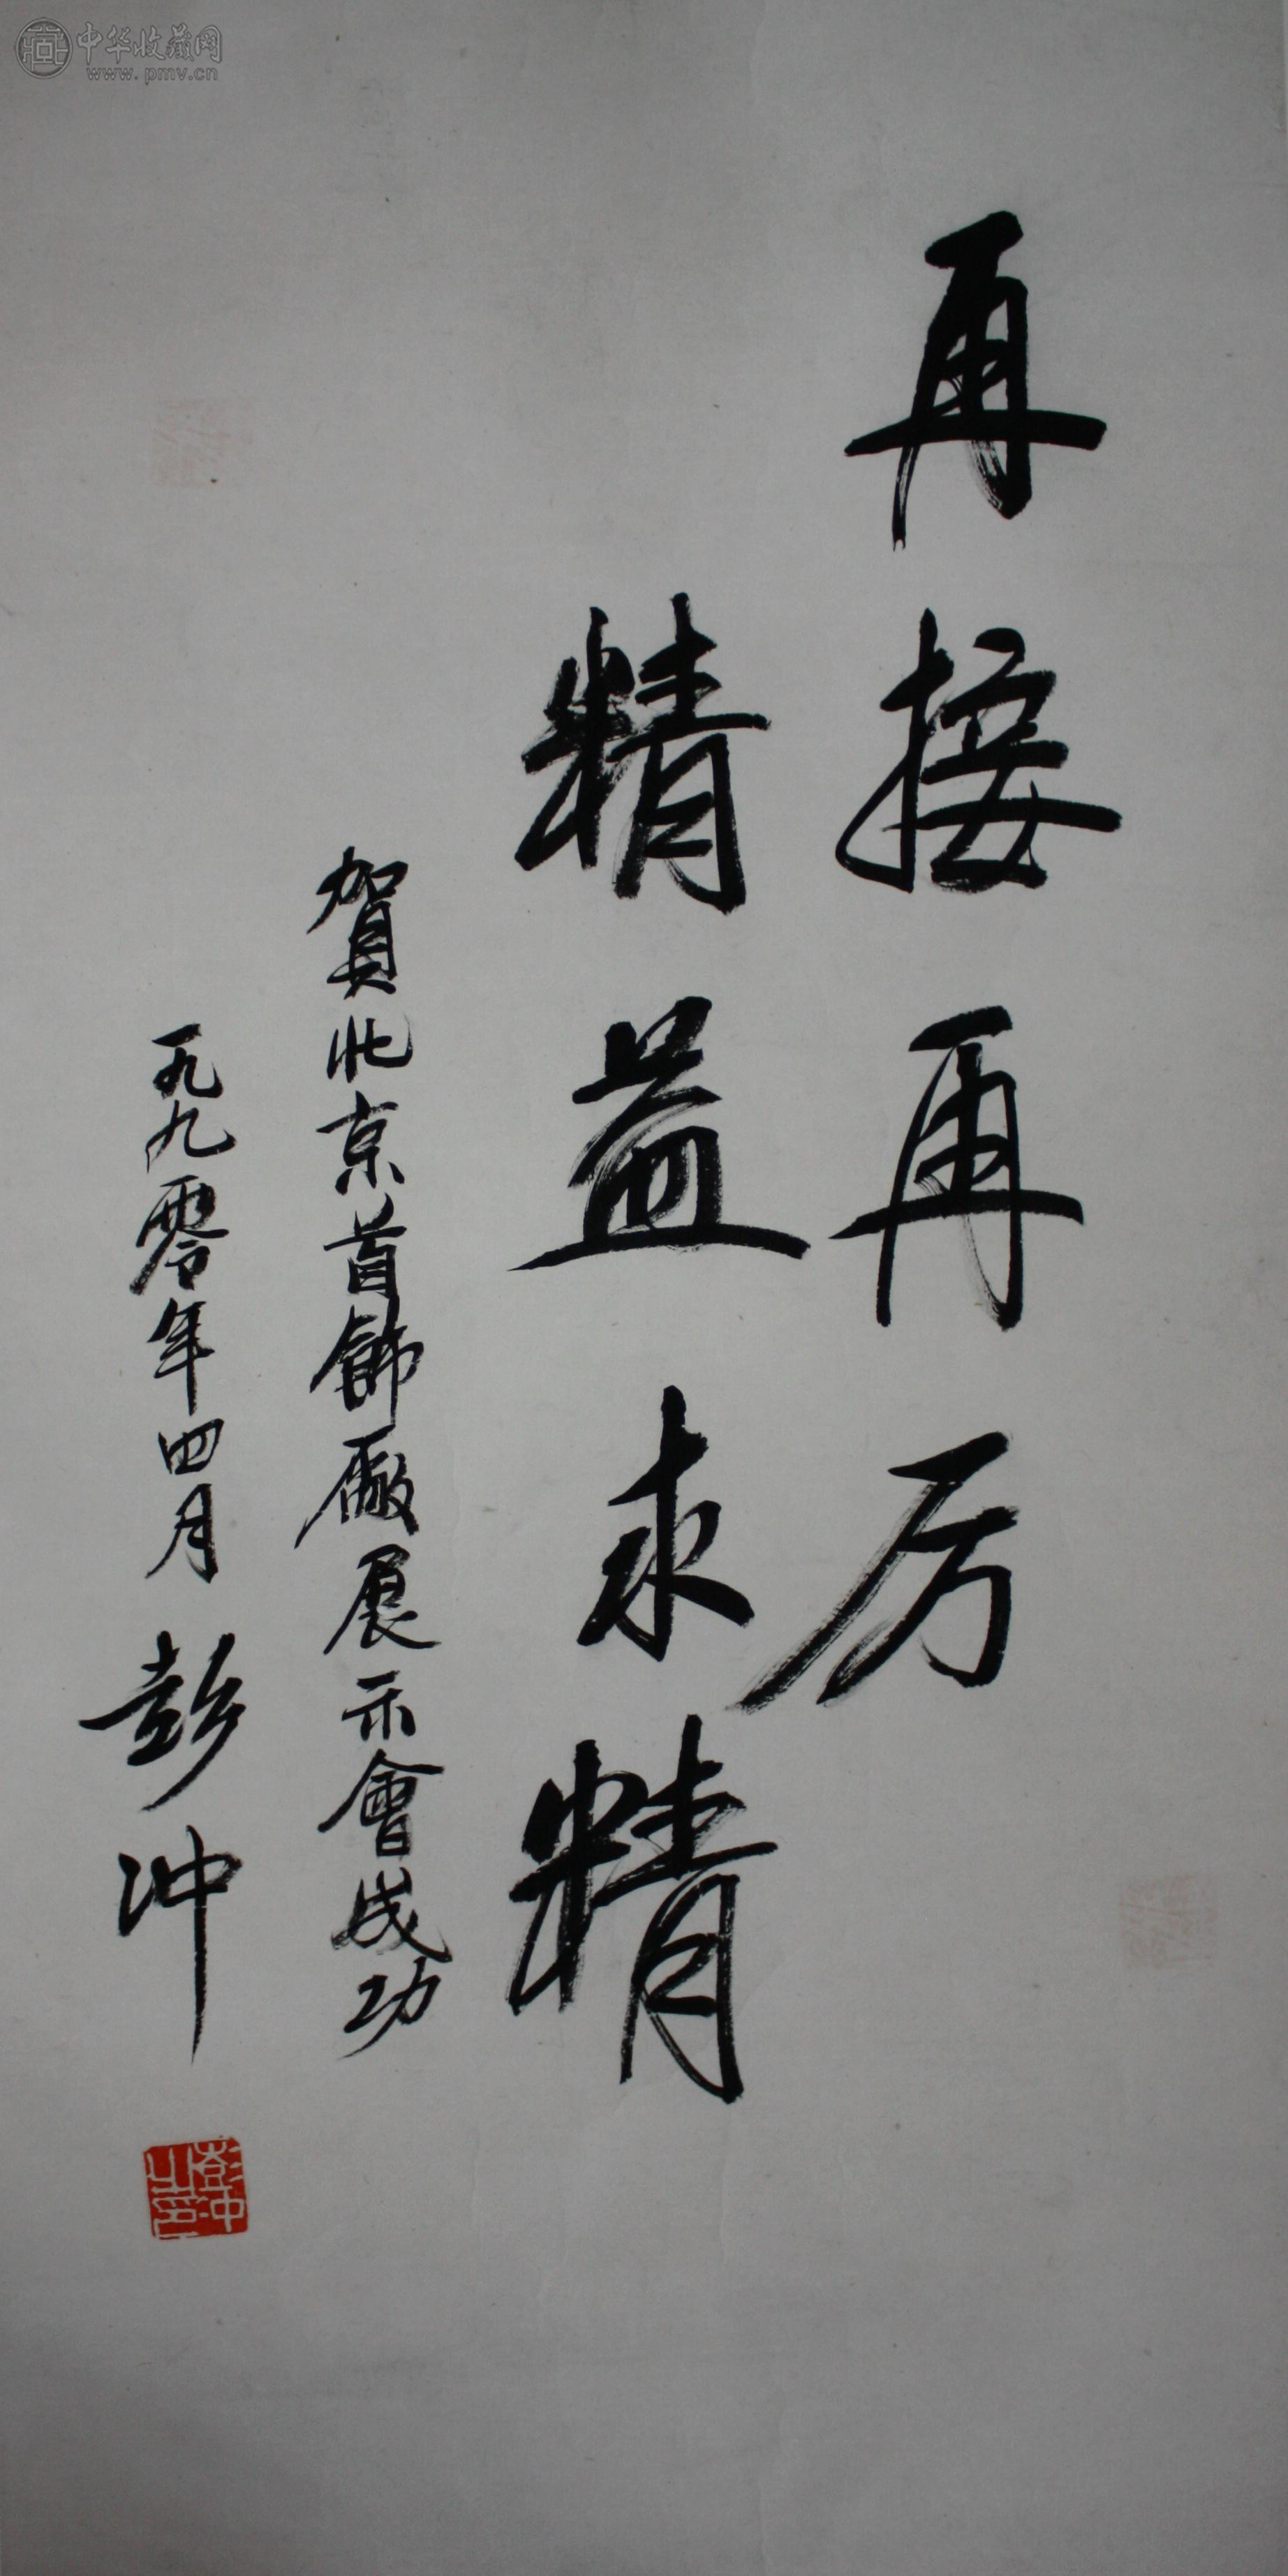 中华收藏网
www.pmv.cn
再接再厉
精益求精
賀北京首飾廠展示會成功
一九九零年四月 彭冲
彭冲之印